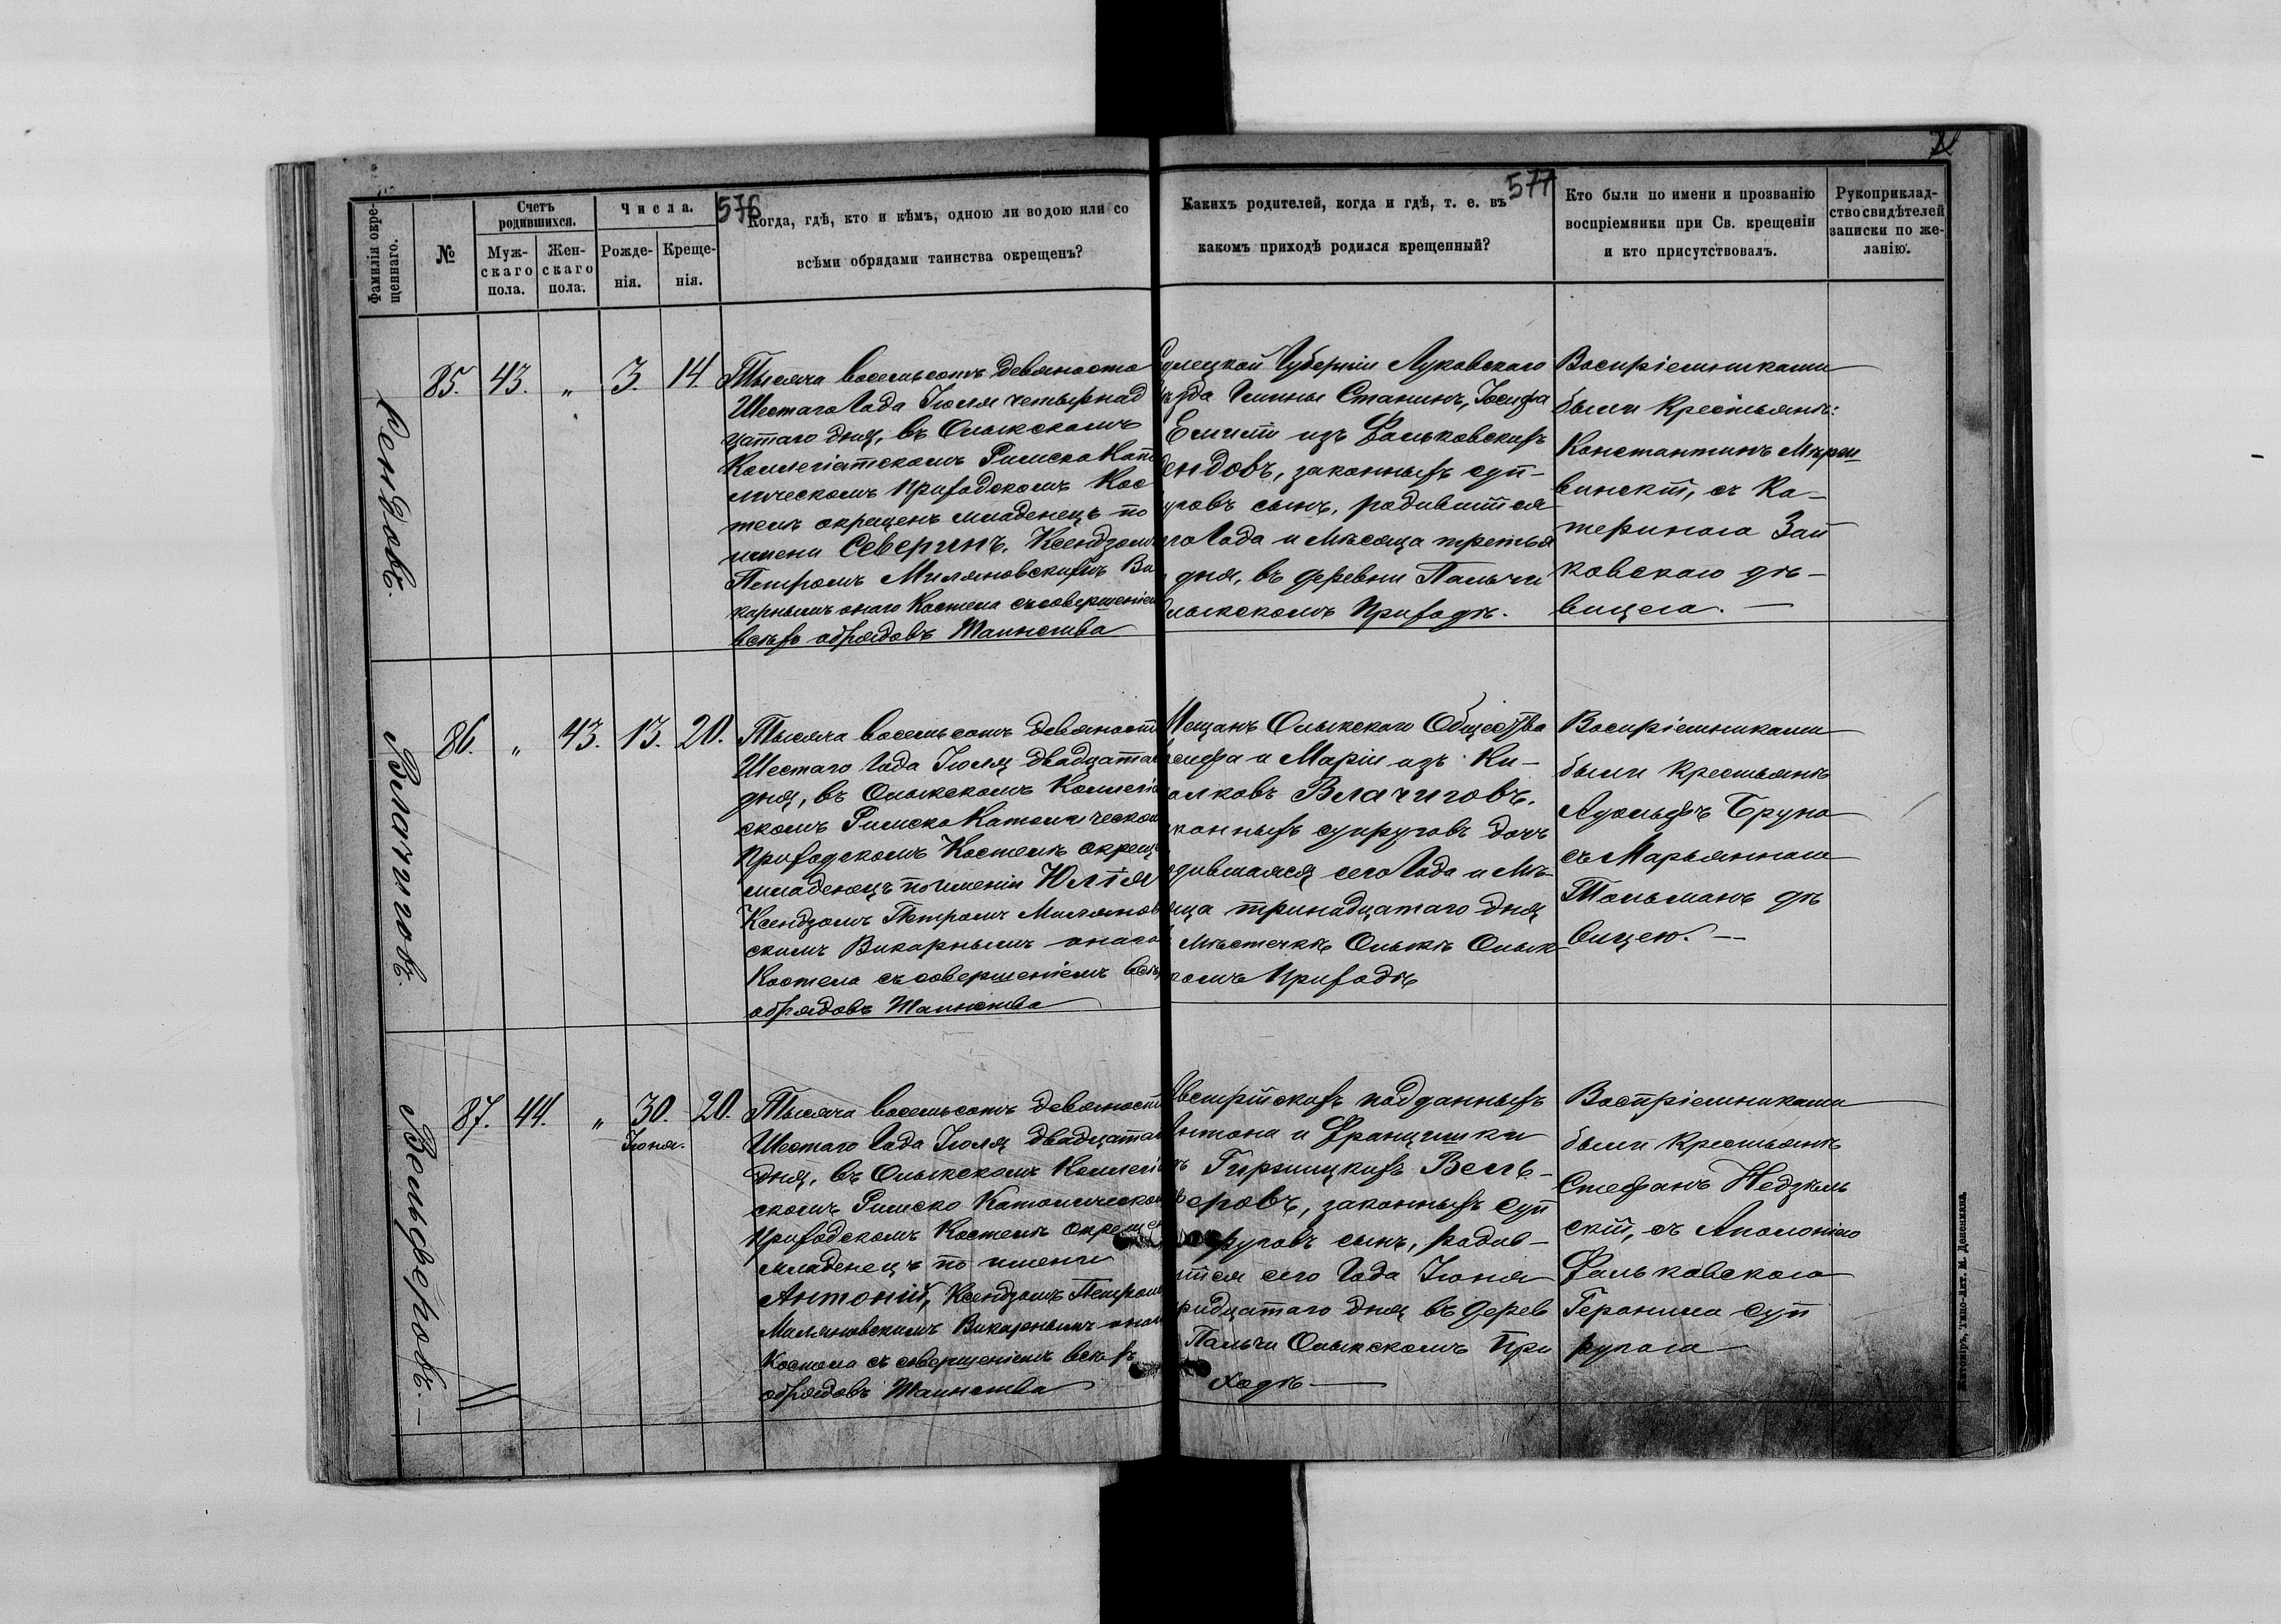 576
577
Фамилія окре-
щеннаго.
№
Счетъ
родившихся.
Муж-
скаго
пола.
Жен-
скаго
пола.
Числа.
Рожде-
нія.
Креще-
нія.
Когда, гдѣ, кто и кѣмъ, одною ли водою или со
всѣми обрядами таинства окрещенъ?
Какихъ родителей, когда и гдѣ, т. е. въ
какомъ приходѣ родился крещенный?
Кто были по имени и прозванію
воспріемники при Св. крещеніи
и кто присутствовалъ.
Рукоприклад-
ство свидѣтелей
записки по же-
ланію.
85. 43. „ 3. 14.
Тысяча восемьсотъ девяноста
Шестаго Года Іюля четырнад
цатаго дня, въ Олыкскомъ
Коллегіатскомъ Римско Като
лическомъ Приходскомъ Кос
телѣ окрещенъ младенецъ по
имени Северинъ. Ксендзомъ
Петромъ Миляновскимъ Ви
карнымъ онаго Костела съ совершеніем
всѣхъ обрядовъ Таинства
длецкой Губерніи Луковскаго
ѣзда Гмины Станинъ, Іосифа
изъ Фальковскихъ
ендовъ, законныхъ суп-
уговъ сынъ, родившійся
го Года и Мѣсяца третья
дня, въ деревни Пальчи
лыкскомъ Приходѣ.
Воспріемниками
были Крестьянѣ:
Константинъ
съ Ка-
териною Зай
ковскою дѣ-
вицею. —
Влачиговъ.
86. „ 43. 13. 20.
Тысяча восемьсотъ девяност
Шестаго Года Іюля двадцатаг
дня, въ Олыкскомъ Коллегіа
скомъ Римско Католическом
Приходскомъ Костелѣ окреще
младенецъ по имени Юлія
Ксендзомъ Петромъ Миланов
скимъ Викарнымъ онаго
Костела съ совершеніемъ всѣх
обрядовъ Таинства
Мещанъ Олыкского Общества
осифа и Маріи изъ Ки-
алковъ Влачиговъ,
конныхъ супруговъ дочь
дившаяся сего Года и Мѣ-
яца тринадцатаго дня
Мѣстечкѣ Олыкѣ Олык
комъ Приходѣ
Воспріемниками
были Крестьянѣ
Адольфъ Бруно
съ Марьянною
Тольманъ дѣ
вицею. —
Вельгеровъ. —
87. 44. „ 30. 20.
Іюня.
Тысяча восемьсотъ девяност
Шестаго Года Іюля двадцатаг
дня, въ Олыкскомъ Коллегіа
скомъ Римско Католическом
Приходскомъ Костелѣ окрещен
младенецъ по имени
Антоній, Ксендзомъ Петромъ
Миляновскимъ Викарнымъ онаго
Костела съ совершеніемъ всѣхъ
обрядовъ Таинства
Австрійскихъ подданныхъ
Антона и Францишки
Вель-
еровъ, законныхъ суп
руговъ сынъ, родив-
ійся сего Года Іюня
ридцатаго дня въ дерев
Пальчи Олыкскомъ При
ходѣ —
Воспріемниками
были Крестьянѣ
Стефанъ Недзѣль
скій, съ Аполоніею
Фальковскою
Геронима суп
ругою
Житоміръ, Типо-Лит. М. Дененмана.